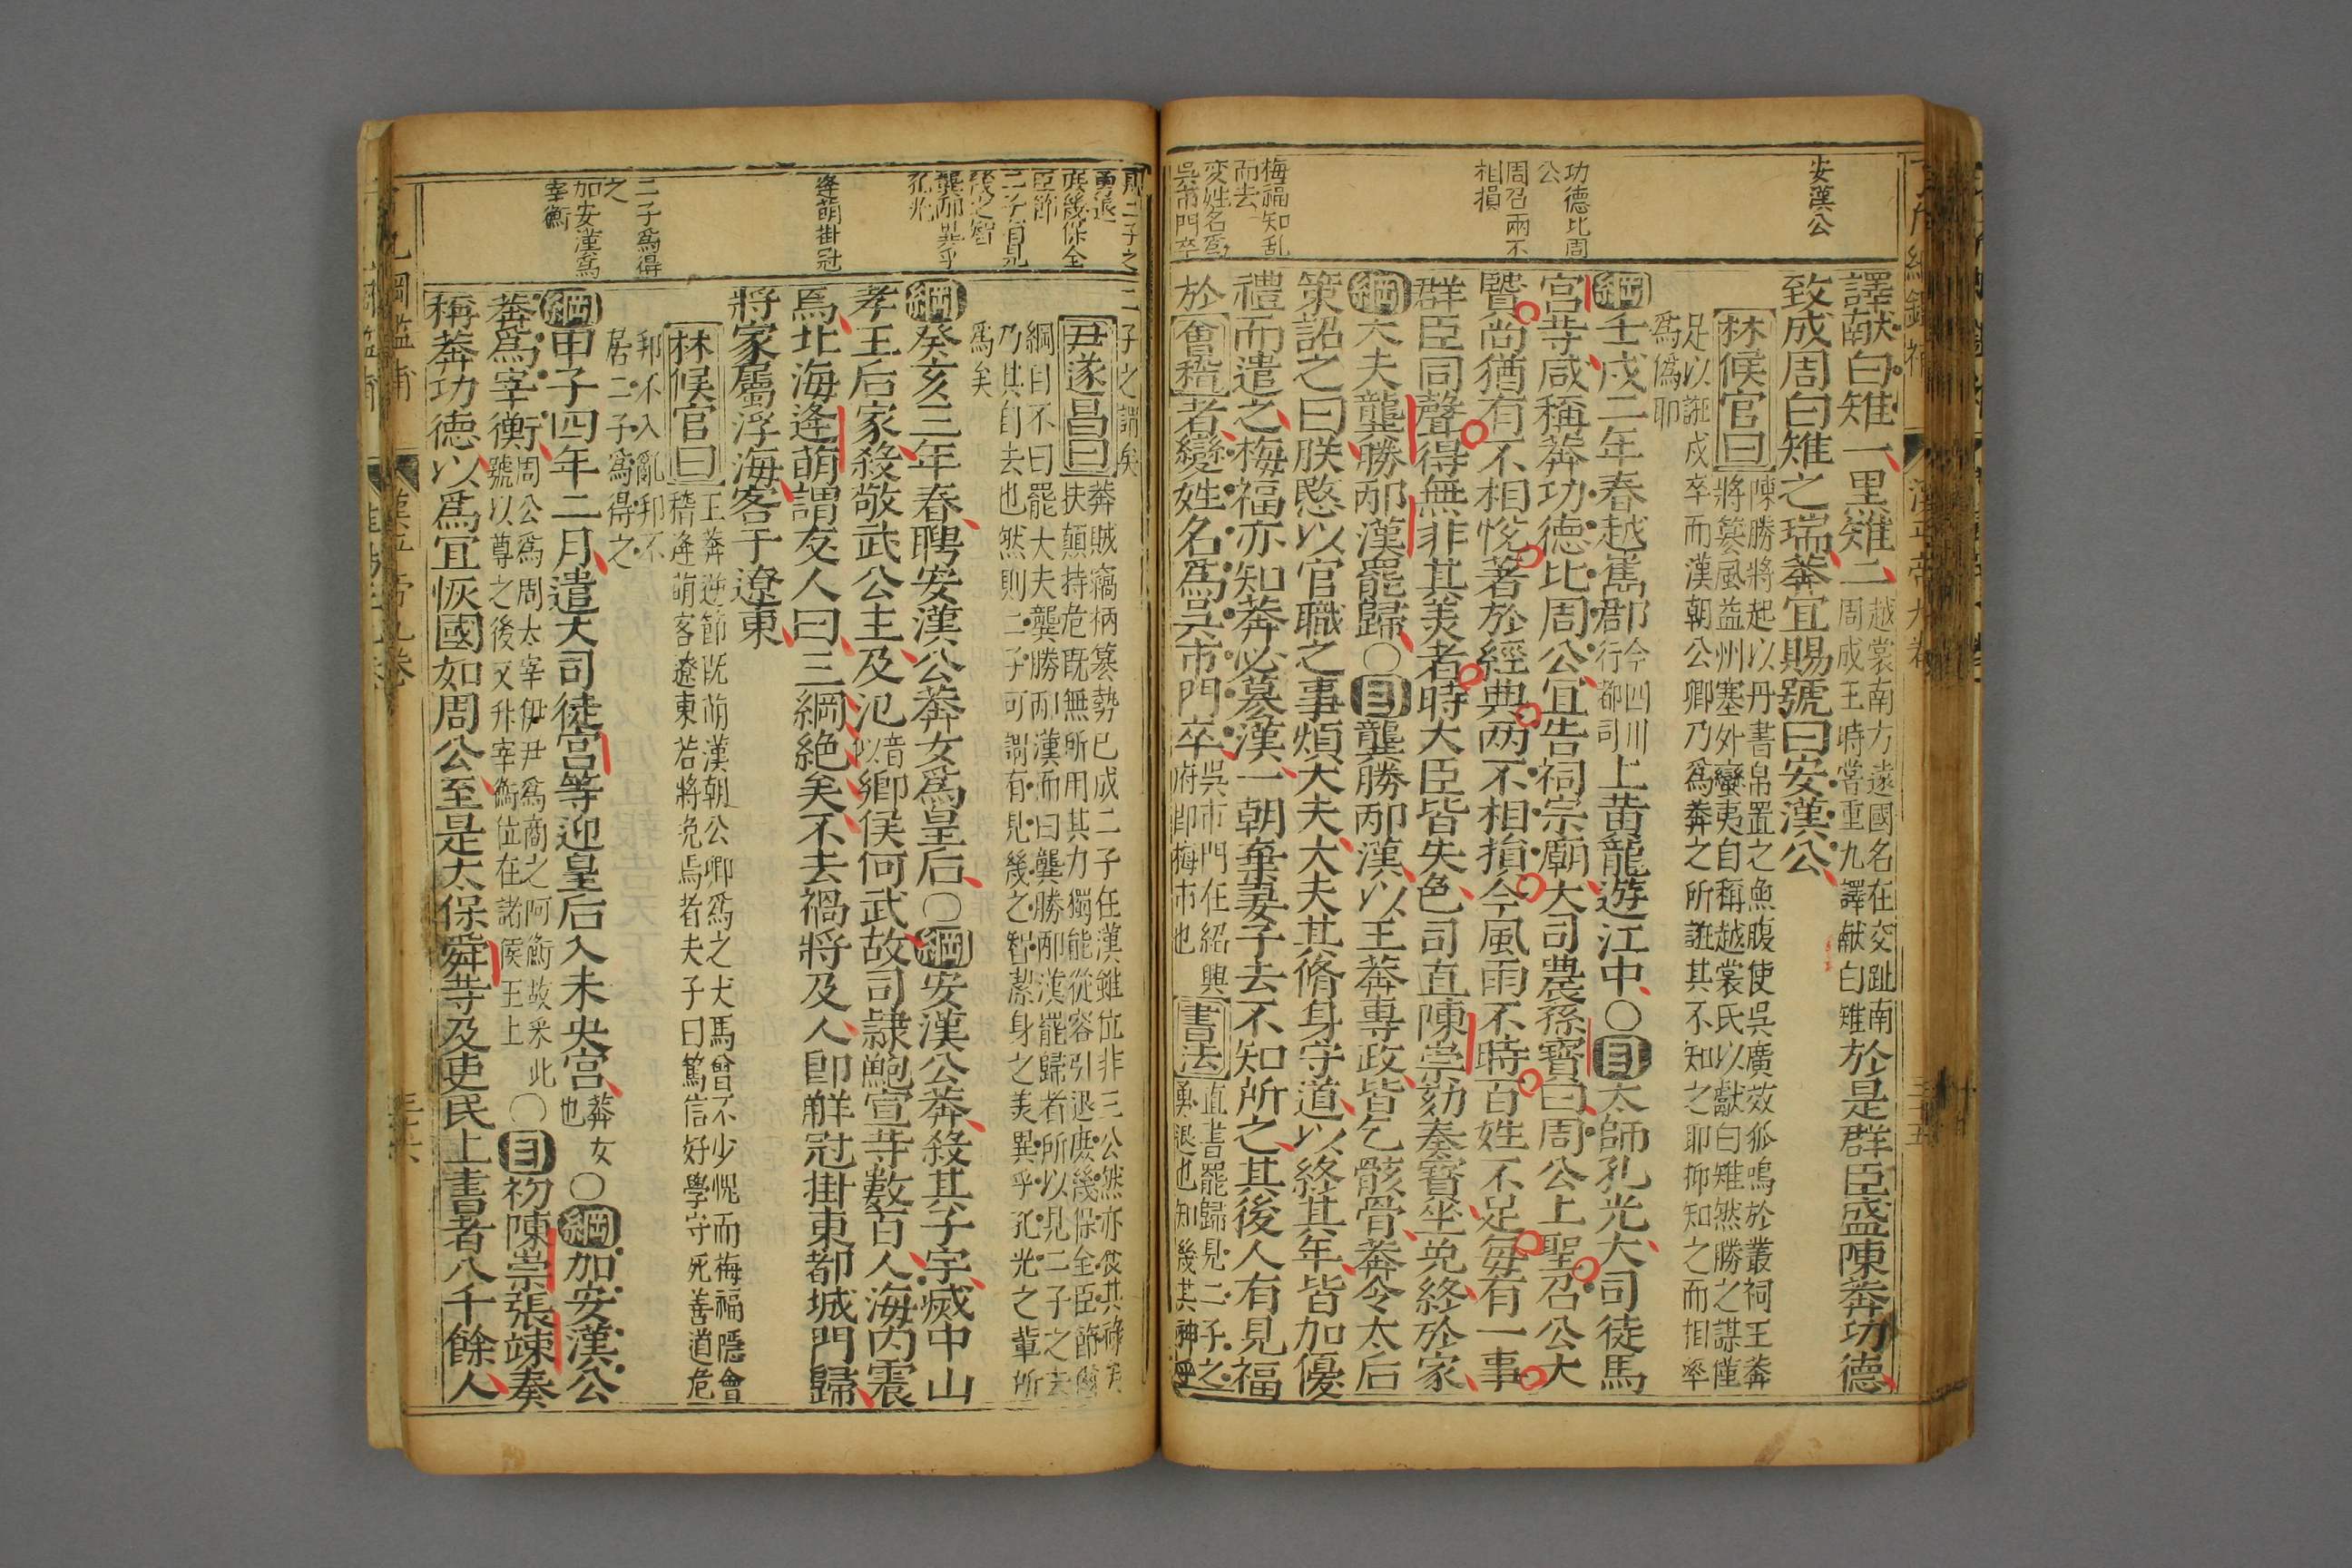 安漢公
功德比周
公
周召兩不
相損
梅福知乱
而去
変姓名爲
吳市門卒
譯献白雉一黒雉二越裳南方遠國名在交趾南
周成王時嘗重九譯献白雉於是群臣盛陳莽功德
致成周白雉之瑞莽宜賜號曰安漢公
林候官曰陳勝將起以丹書帛置之魚腹使吳廣效狐鳴於叢祠王莽
將篡風益州塞外蠻夷自稱越裳氏以獻白雉然勝之謀僅
足以誑戍卒而漢朝公卿乃爲莽之所誑其不知之耶抑知之而相率
爲僞耶
綱壬戌二年春越嶲郡今四川
行都司上黄龍遊江中〇目太師孔光大司徒馬
宮䓁咸稱莽功德比周公宜告祠宗廟大司農孫寶曰周公上聖召公大
賢尚猶有不相悅著於經典两不相損今風雨不時百姓不足每有一事
群臣同聲得無非其美者時大臣皆失色司直陳崇劾奏寳坐免終於家
綱大夫龔勝邴漢罷歸〇目龔勝邴漢以王莽專政皆乞骸骨莽令太后
策詔之曰朕愍以官職之事煩大夫大夫其脩身守道以終其年皆加優
禮而遣之梅福亦知莽必篡漢一朝棄妻子去不知所之其後人有見福
於會稽者變姓名爲吳市門卒吳市門在紹興
府即梅市也書法直書罷歸見二子之
勇退也知幾其神乎
則二子之
勇退
庶幾保全
臣節
二子有見
幾之智
龔邴異乎
孔光
逄萌掛冠
二子爲得
之
加安漢爲
宰衡
二子之謂矣
尹遂昌曰莽賊竊柄篡勢已成二子任漢雖位非三公然亦食其祿
扶顛持危既無所用其力獨能從容引退庶幾保全臣節爾
綱目不曰罷大夫龔勝邴漢而曰龔勝邴漢罷歸者所以見二子之去
乃其自去也然則二子可謂有見幾之智潔身之美異乎孔光之輩所
爲矣
綱癸亥三年春聘安漢公莽女爲皇后〇綱安漢公莽殺其子宇滅中山
孝王后家殺敬武公主及氾音
以鄉侯何武故司隷鮑宣䓁數百人海内震
焉北海逄萌謂友人曰三綱絶矣不去禍將及人卽解冠掛東都城門歸
將家屬浮海客于遼東
林候官曰王莽逆節既萠漢朝公卿爲之犬馬曾不少愧而梅福隱會
稽逄萌客遼東若將免焉者夫子曰篤信好學守死善道危
邦不入亂邦不
居二子爲得之
綱甲子四年二月遣大司徒宮等迎皇后入未央宮莽女
也〇綱加安漢公
莽爲宰衡周公爲周太宰伊尹爲商之阿衡故采此
號以尊之後又升宰衡位在諸侯王上〇目初陳崇張竦奏
稱莽功德以爲宜恢國如周公至是太保舜䓁及吏民上書者八千餘人